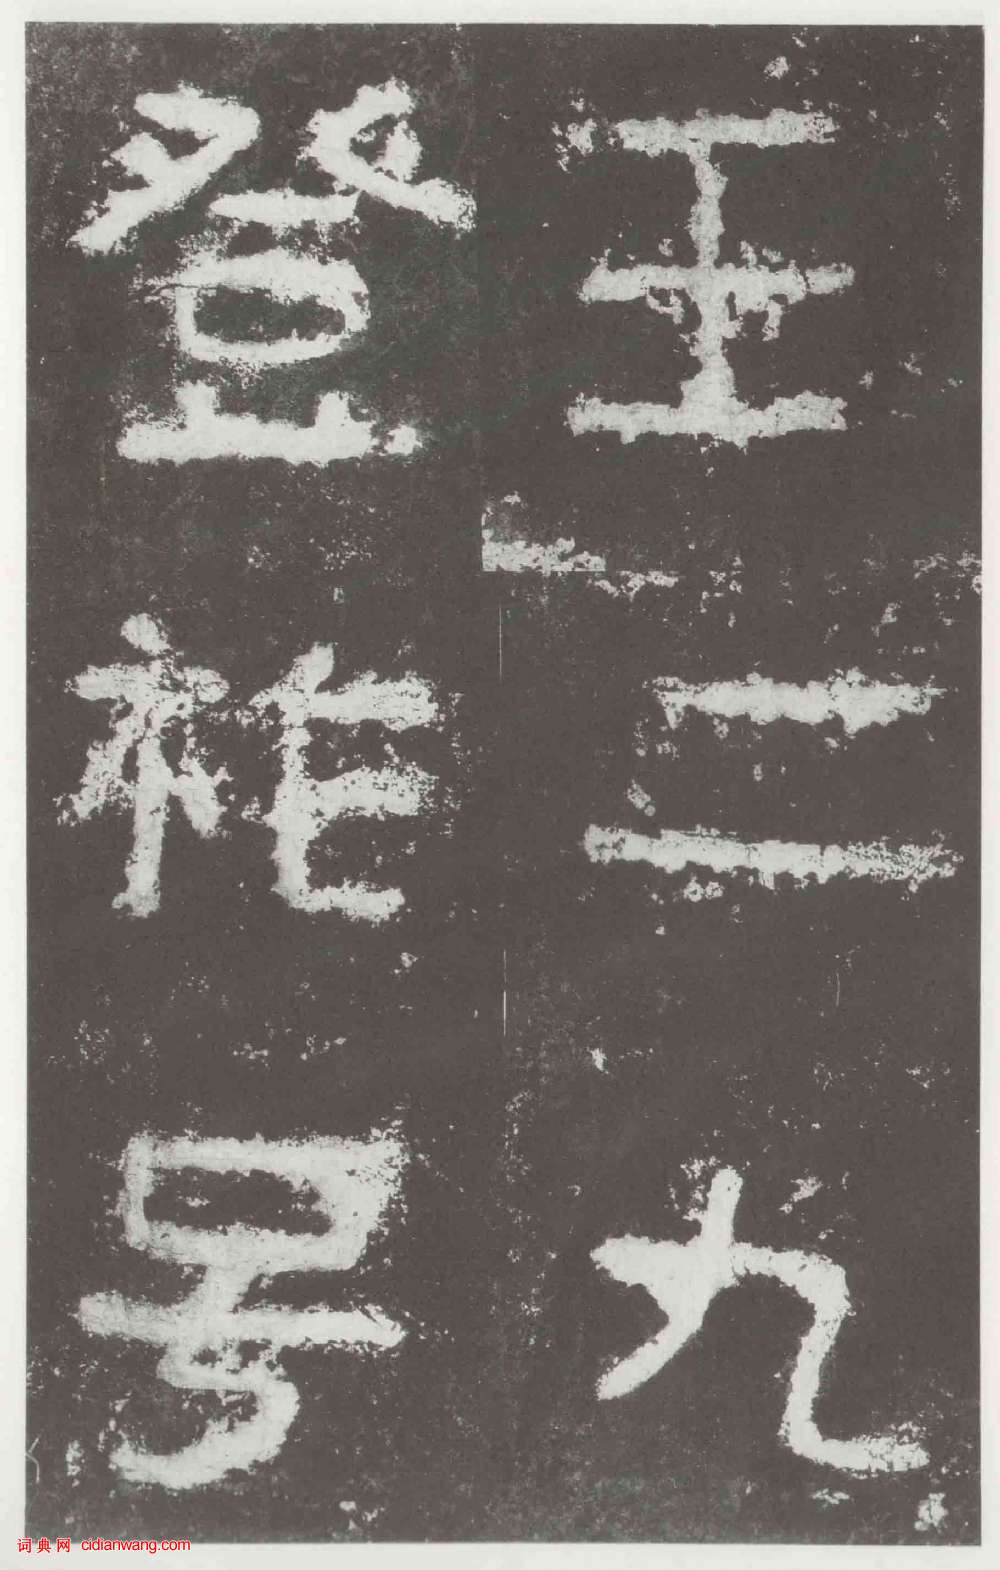 王二九
登祚号
词典网 cidianwang.com